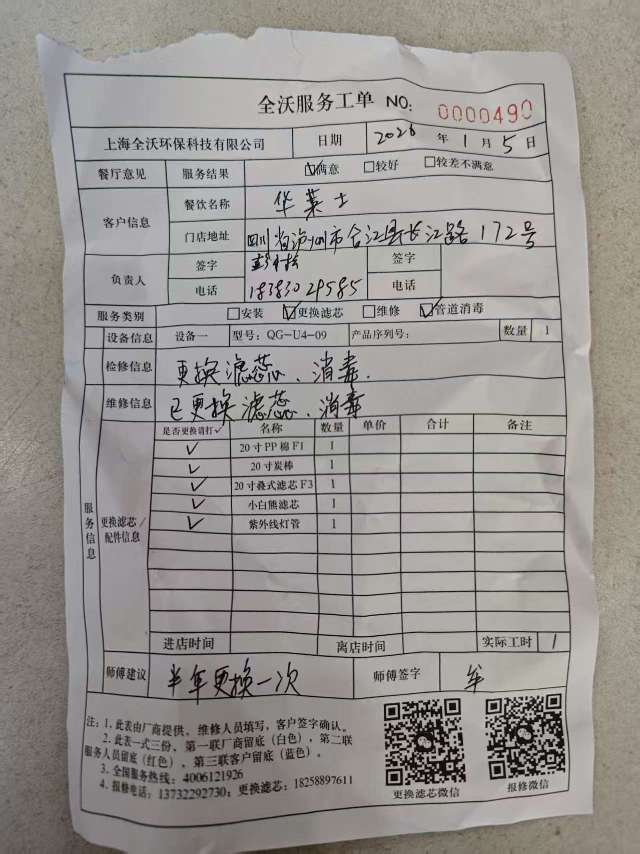 全沃服务工单 NO: 0000490
上海全沃环保科技有限公司 日期 2026 年 1 月 5 日
餐厅意见 服务结果 ☑满意 □较好 □较差不满意
客户信息 餐饮名称 华莱士
门店地址 四川省泸州市合江县长江路172号
负责人 签字 签字
电话 18383029585 电话
服务类别 □安装 ☑更换滤芯 □维修 ☑管道消毒
设备信息 设备一 型号: QG-U4-09 产品序列号: 数量 1
检修信息 更换滤芯、消毒.
维修信息 已更换滤芯、消毒
服务信息 更换滤芯/配件信息
是否更换请打✓ 名称 数量 单价 合计 备注
✓ 20寸PP棉F1 1
✓ 20寸炭棒 1
✓ 20寸叠式滤芯F3 1
✓ 小白熊滤芯 1
✓ 紫外线灯管 1
进店时间 离店时间 实际工时 1
师傅建议 半年更换一次 师傅签字
注: 1. 此表由厂商提供、维修人员填写, 客户签字确认。
2. 此表一式三份、第一联厂商留底(白色), 第二联
服务人员留底(红色)、第三联客户留底(蓝色)。
3. 全国服务热线: 4006121926
4. 报修电话: 13732292730; 更换滤芯: 18258897611
更换滤芯微信 报修微信